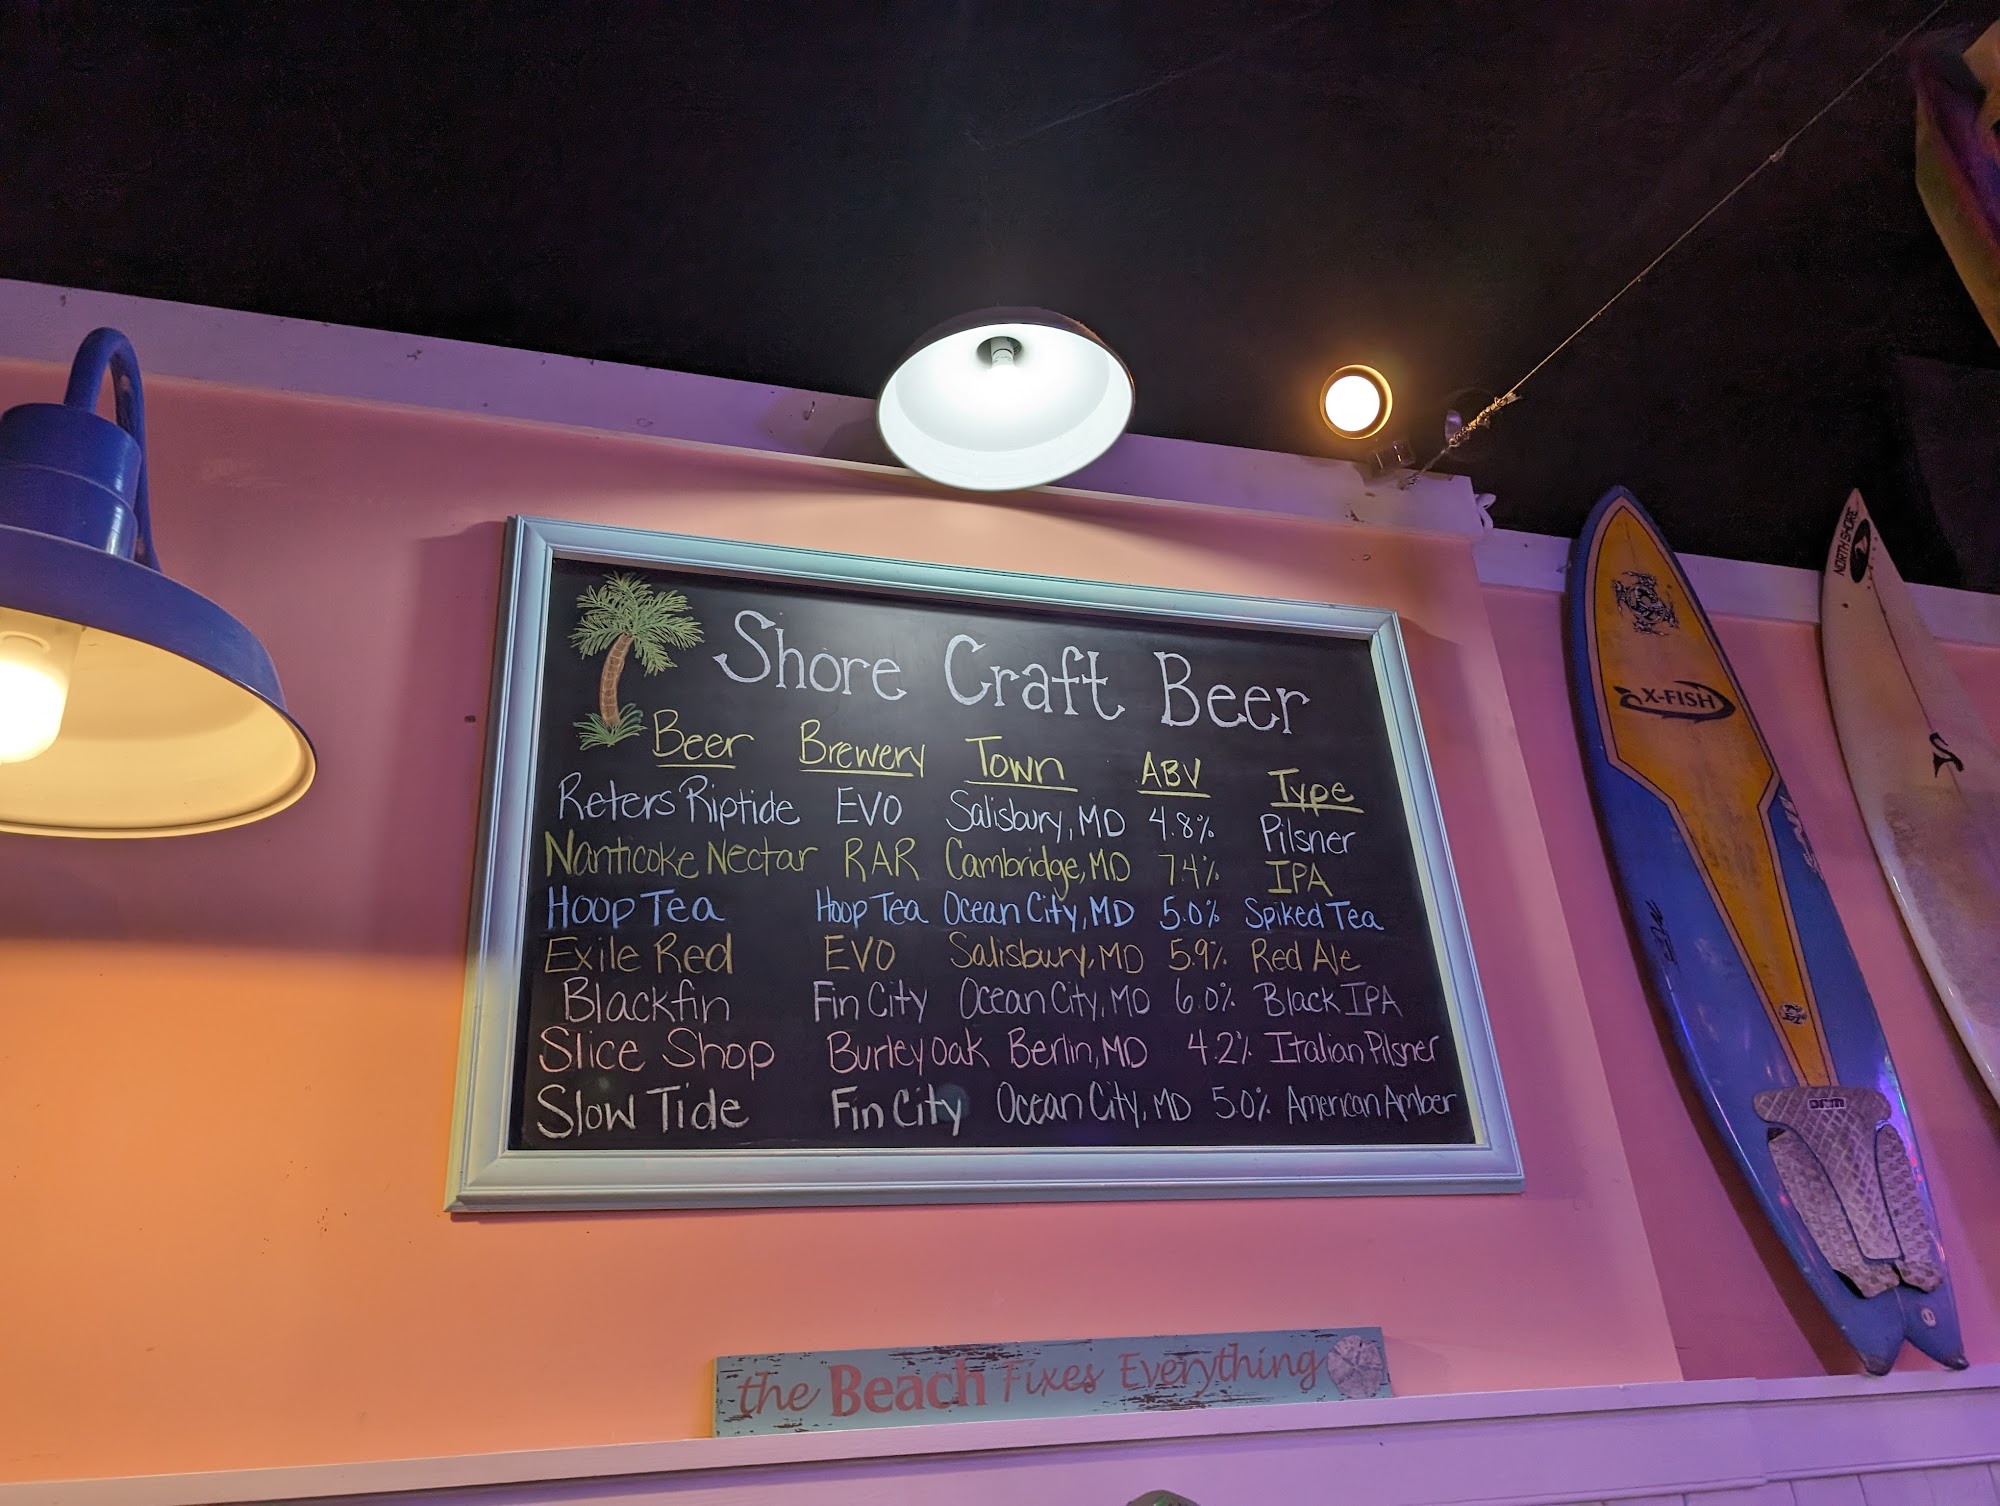 Shore Craft Beer
Beer Brewery Town ABV Type
Reters Riptide EVO Salisbury, MD 4.8% Pilsner
Nanticoke Nectar RAR Cambridge, MD 7.4% IPA
Hoop Tea Hoop Tea Ocean City, MD 5.0% Spiked Tea
Exile Red EVO Salisbury, MD 5.9% Red Ale
Blackfin Fin City Ocean City, MD 6.0% Black IPA
Slice Shop Burley Oak Berlin, MD 4.2% Italian Pilsner
Slow Tide Fin City Ocean City, MD 5.0% American Amber
the Beach Fixes Everything
X-FISH
NORTH SHORE